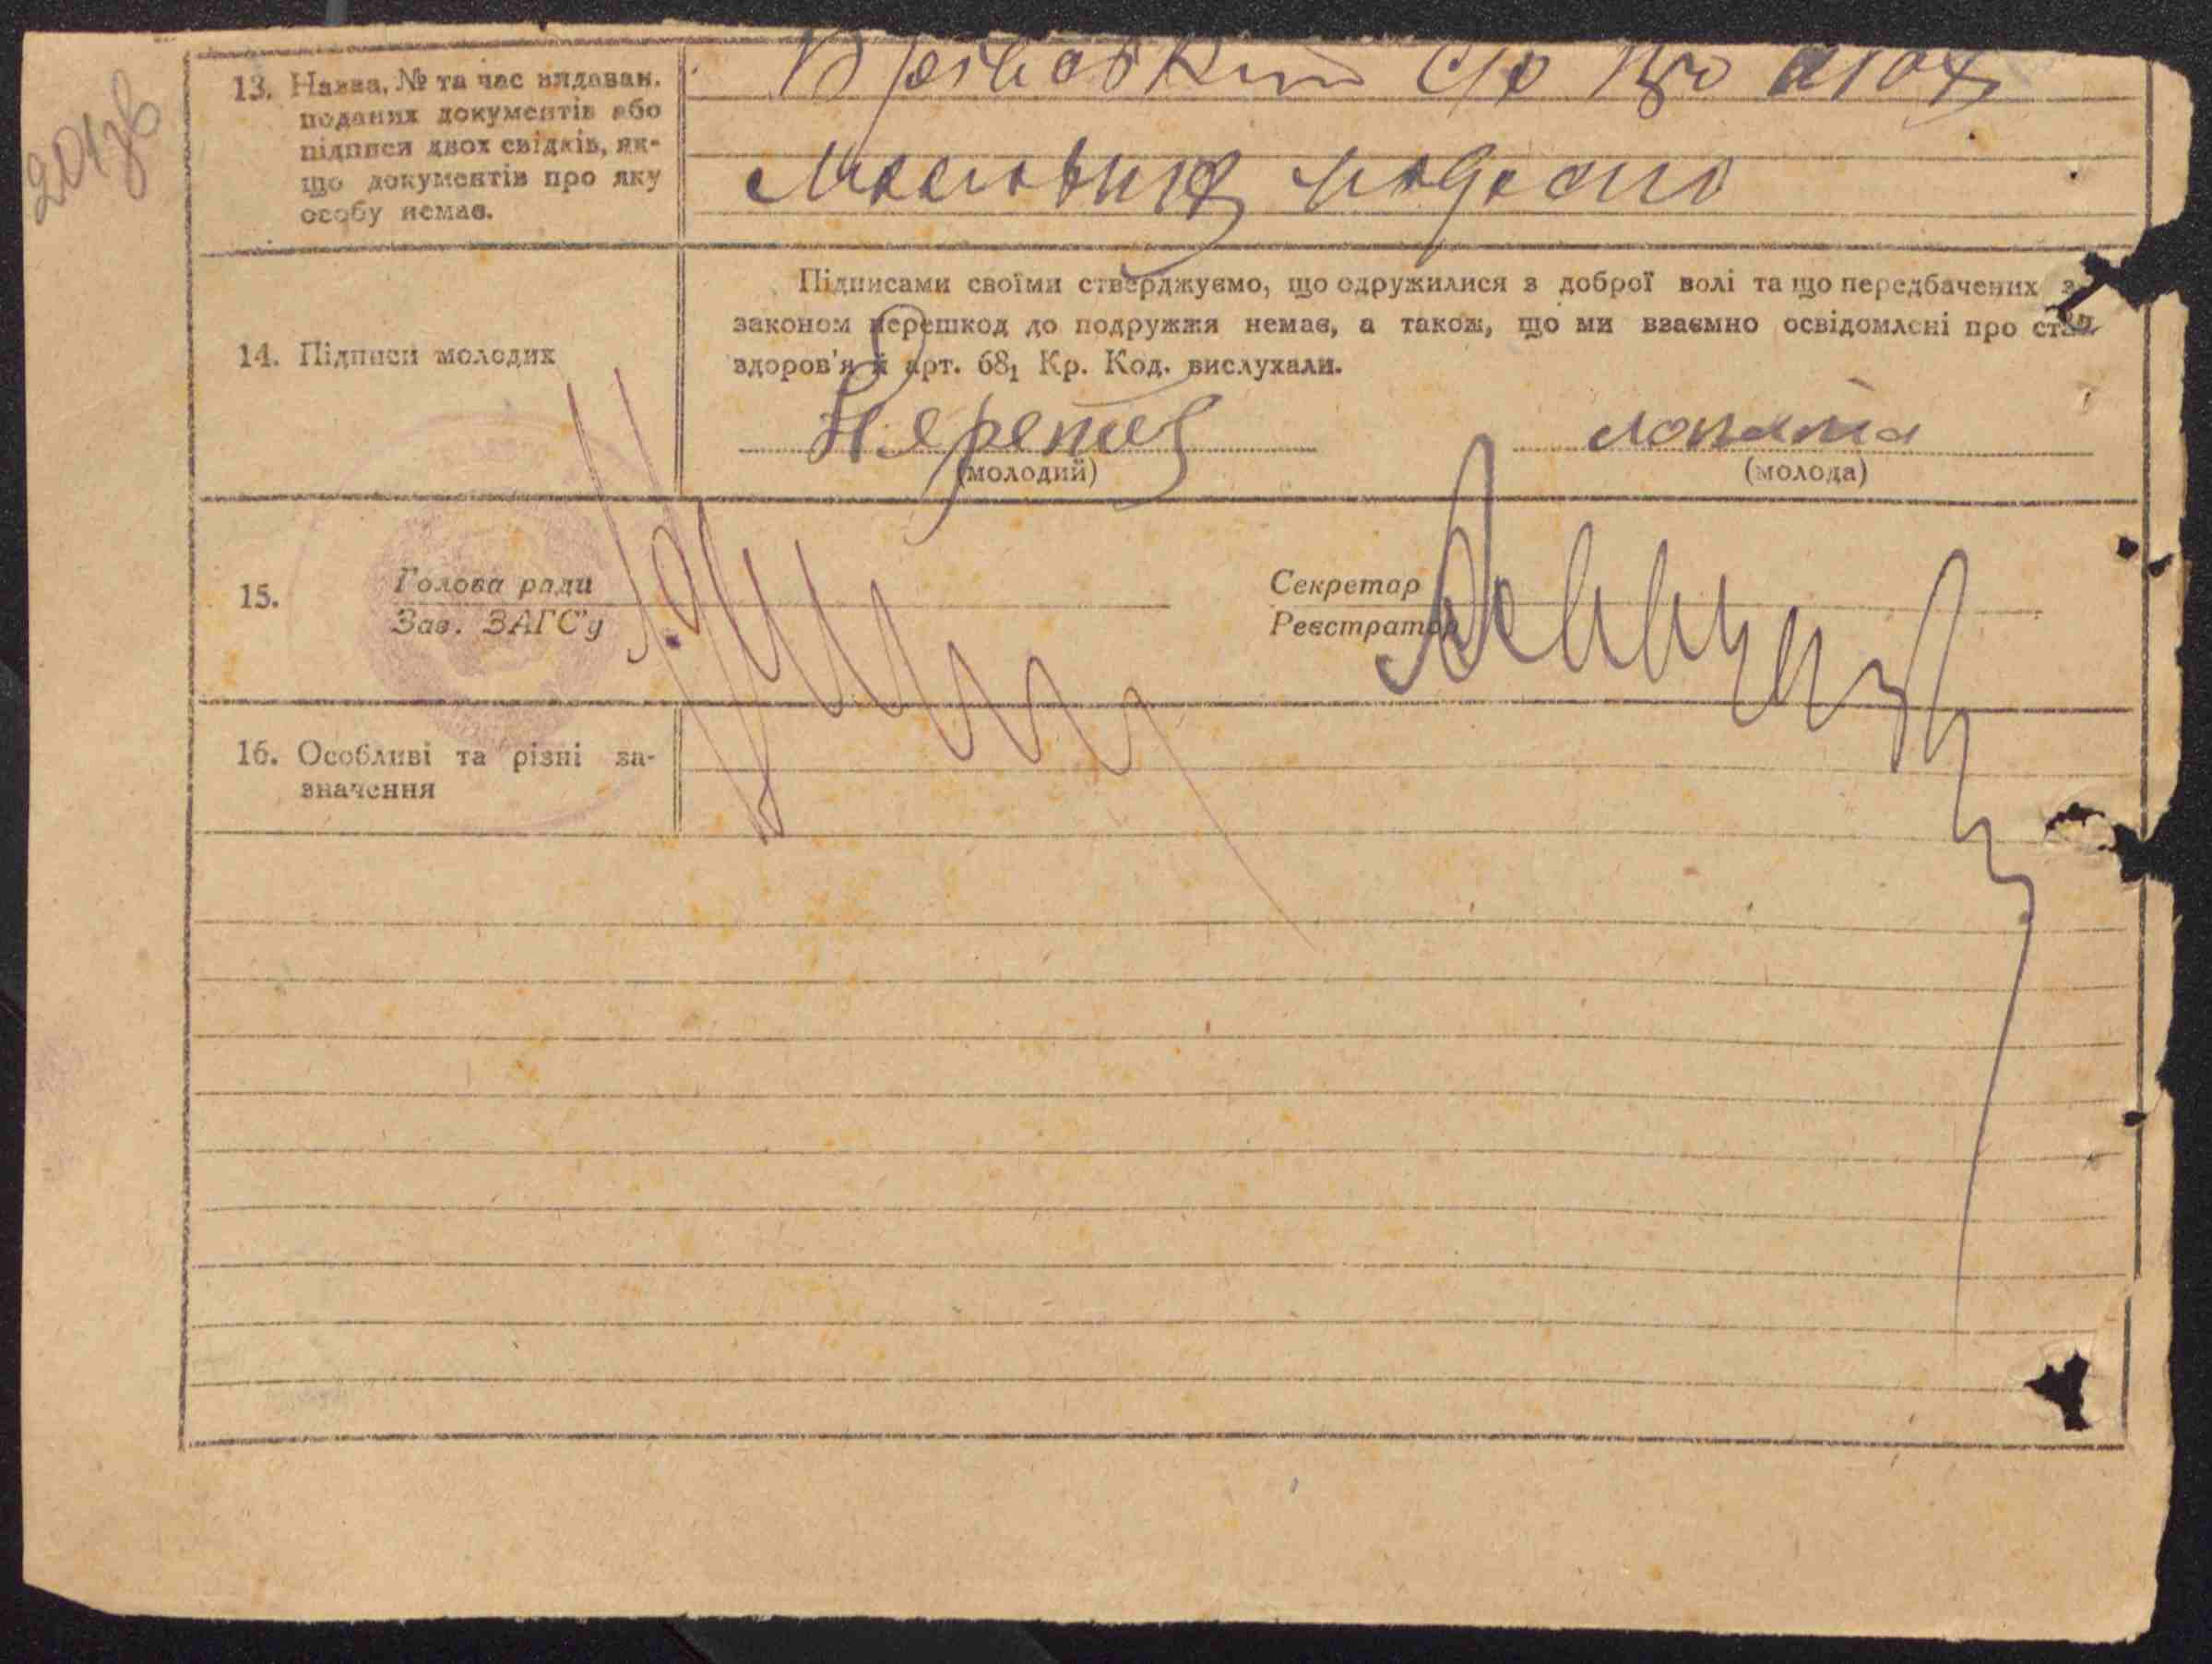 201зв
13. Назва, № та час видаван.
поданих документів або
підписи двох свідків, як-
що документів про яку
особу немає.
с/р про
14. Підписи молодих
Підписами своїми стверджуємо, що одружилися з доброї волі та що передбачених з
законом перешкод до подружжя немає, а також, що ми взаємно освідомлені про стан
здоров'я й арт. 68₁ Кр. Код. вислухали.
лопата
(молодий)
(молода)
15.
Голова ради
Зав. ЗАГС'у
Секретар
Реєстратор
16. Особливі та різні за-
значення